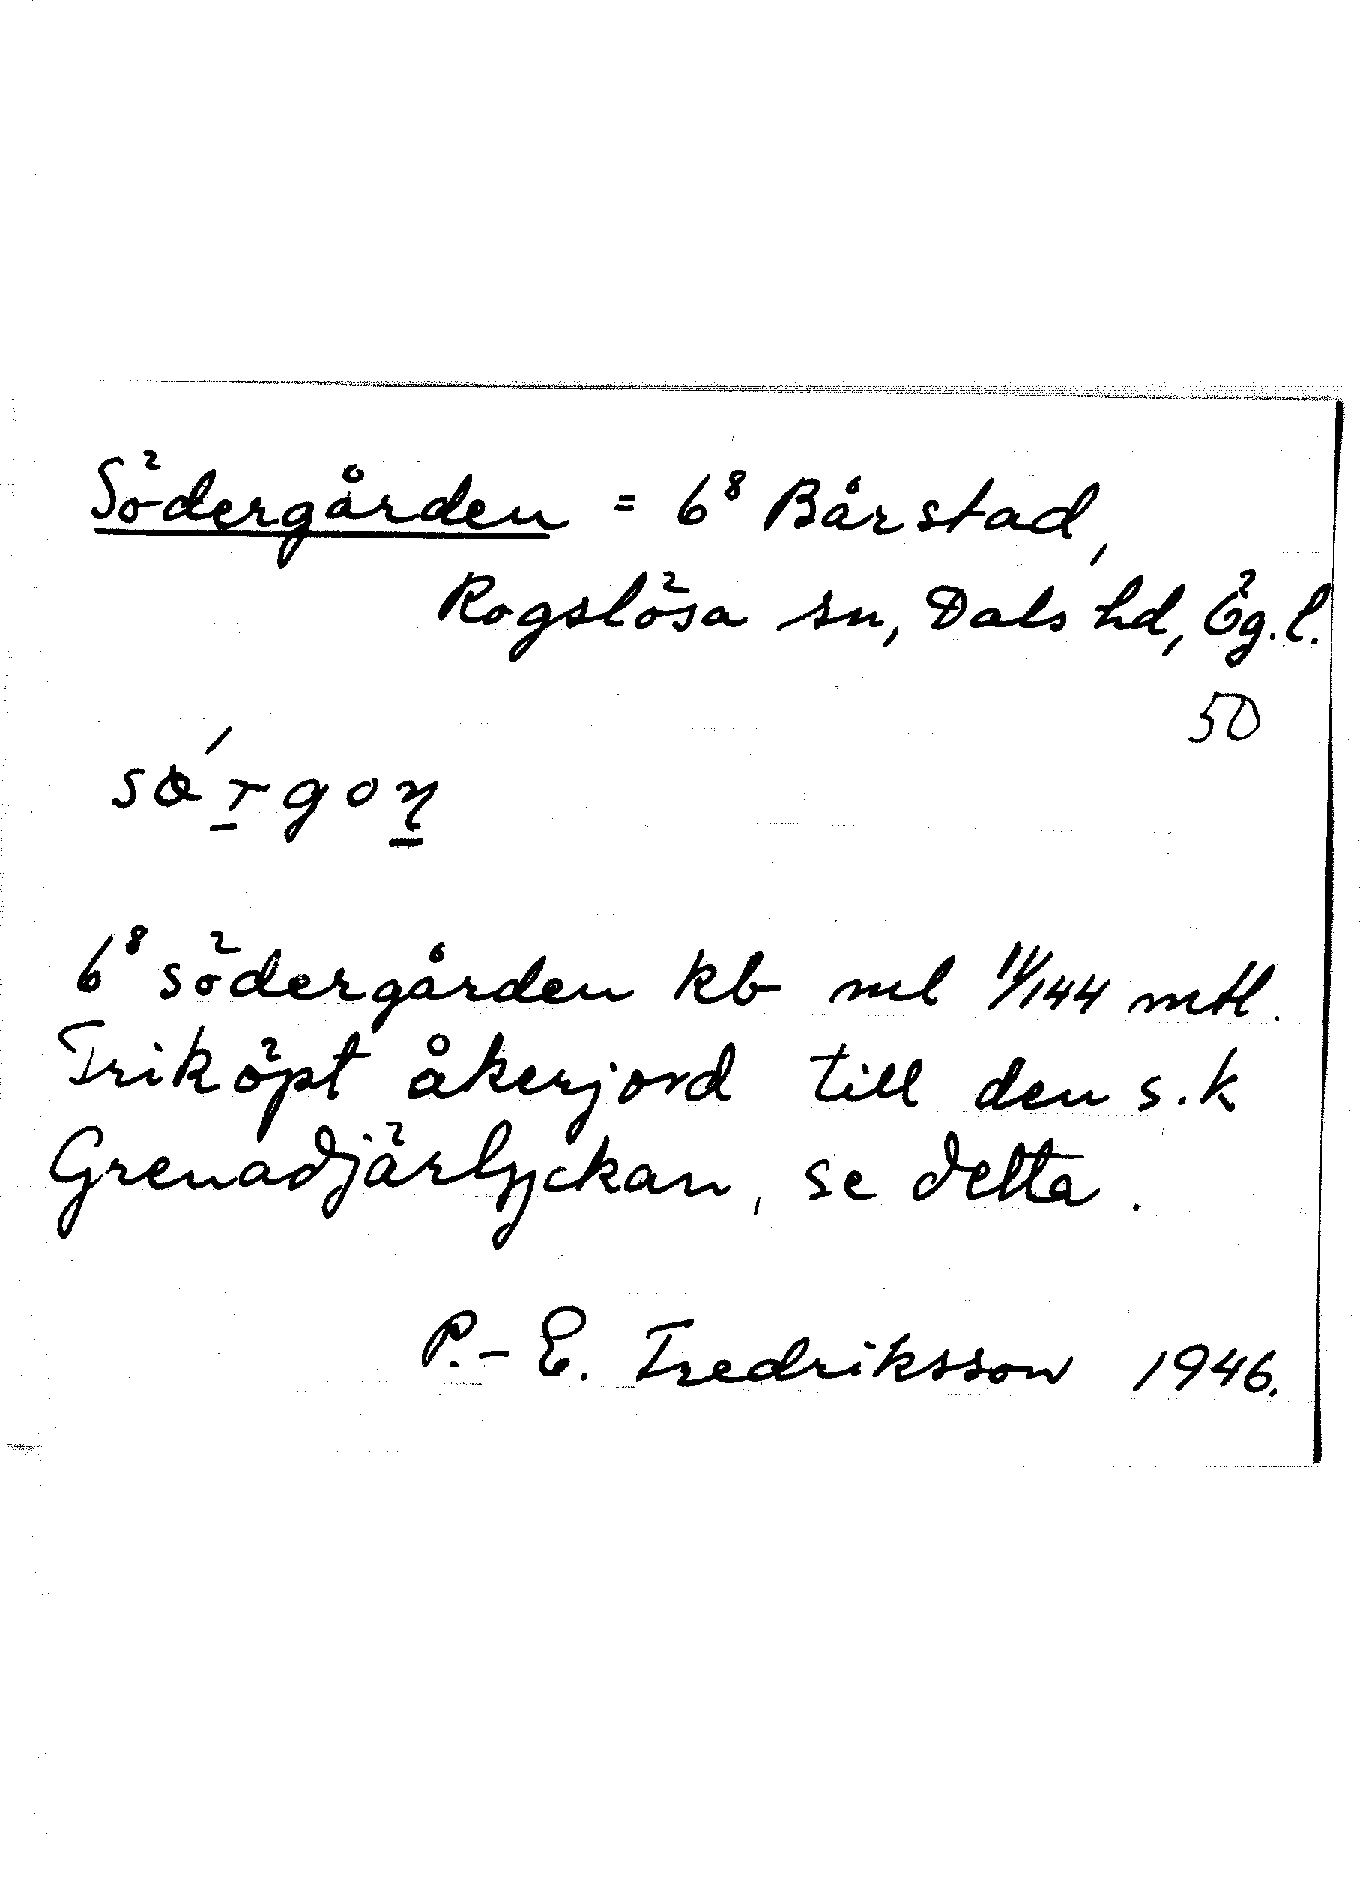 Södergården = 6⁸ Bårstad,
Rogslösa sn, Dals hd, Ög. l.
50
6⁸ södergården kb ml 11/144 mtl.
Friköpt åkerjord till den s.k
Grenadjärlyckan, se detta.
P.-E. Fredriksson 1946.